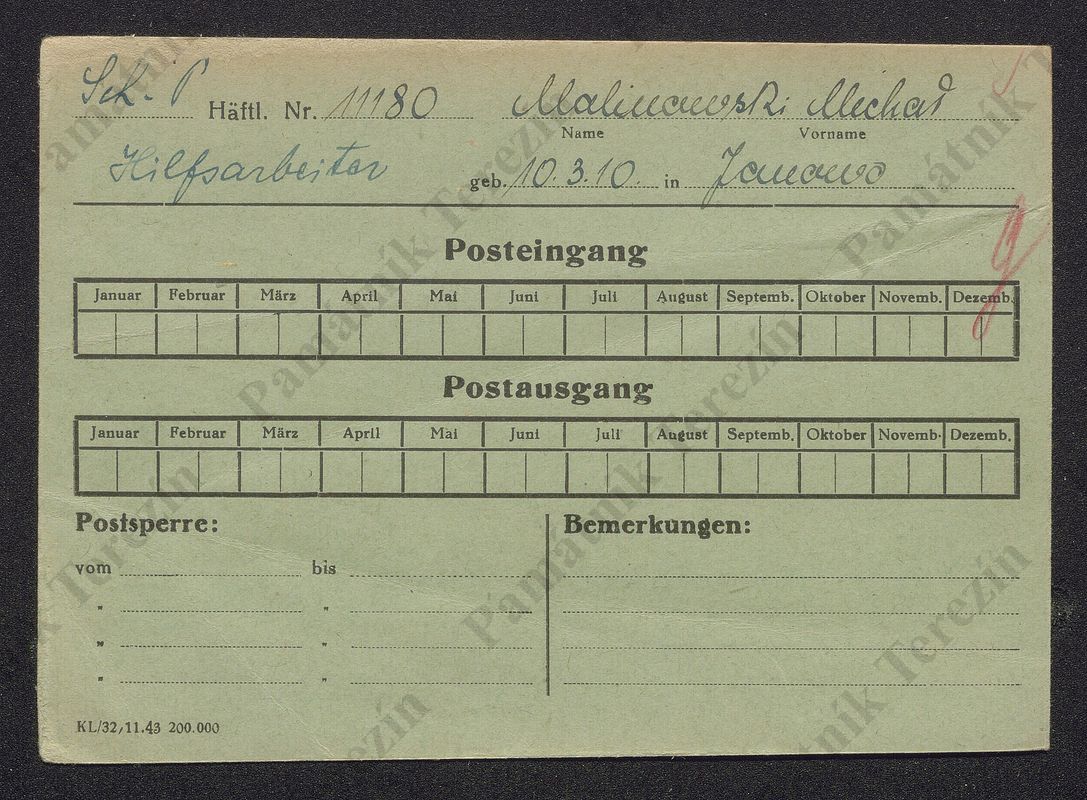 Sch. - P Häftl. Nr. 11180 Malinowski Michał
Name Vorname
Hilfsarbeiter geb. 10.3.10. in Janowo
Posteingang
Januar Februar März April Mai Juni Juli August Septemb. Oktober Novemb. Dezemb.
Postausgang
Januar Februar März April Mai Juni Juli August Septemb. Oktober Novemb. Dezemb.
Postsperre: Bemerkungen:
vom bis
" "
" "
" "
KL/32, 11.43 200.000
Památník Terezín